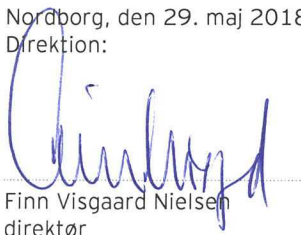 Nordborg, den 29. maj 2018
Direktion:
Finn Visgaard Nielsen
direktør